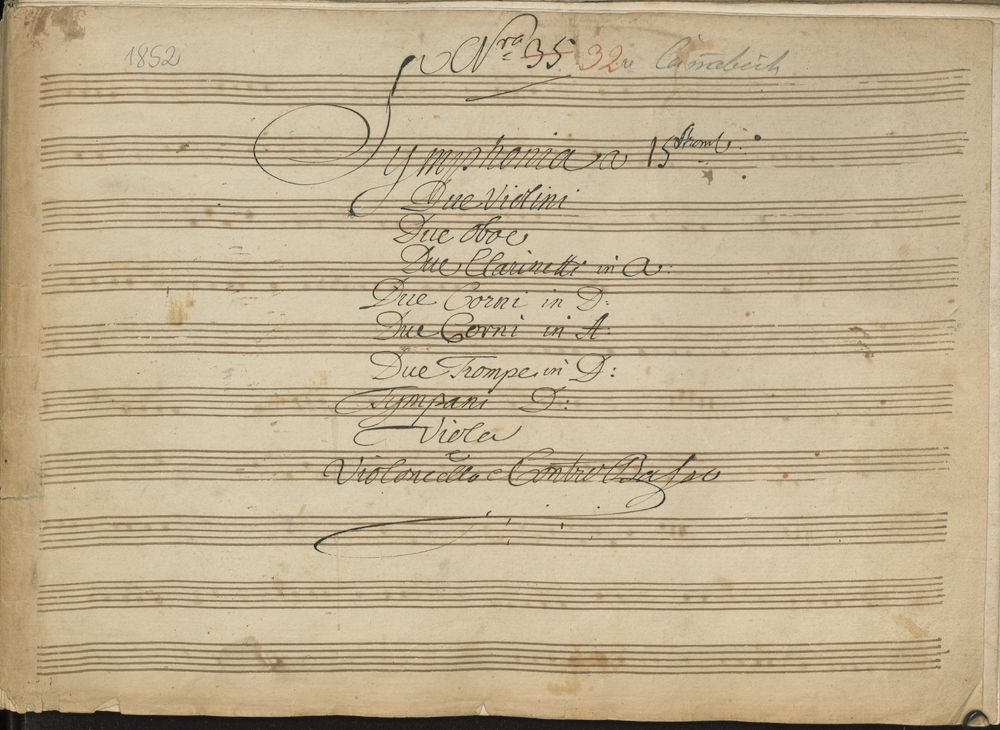 1852 Nra 35 32
Symphonia a 15 Strom:
Due Violini
Due Oboe
Due Clarinetti in A:
Due Corni in D:
Due Corni in A:
Due Trompe in D:
Tympani D:
Viola
Violoncello e Contro Basso